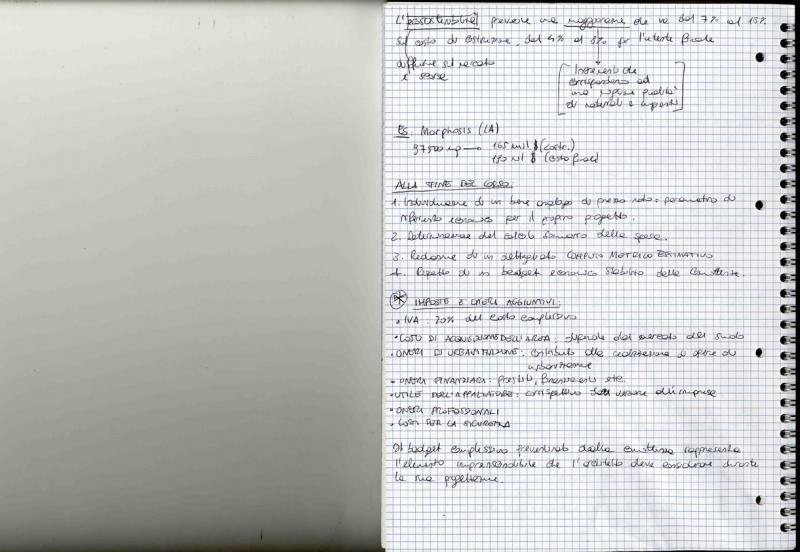 L'ecosostenibilità prevede una maggiorazione che va dal 7% al 15%
sul costo di costruzione, dal 4% al 8% per l'utente finale
diffusione sul mercato
è scarsa
Incrementi che
corrispondono ad
una migliore qualità
di materiali e impianti
ES. Morphosis (LA)
97500 mq → 165 mil $ (costr.)
190 ml $ (costo finale)
ALLA FINE DEL CORSO:
1. Individuazione di un bene analogo di prezzo noto = parametro di
riferimento economico per il proprio progetto.
2. Determinazione del calcolo sommario della spesa.
3. Redazione di un dettagliato COMPUTO METRICO ESTIMATIVO
4. Rispetto di un budget economico stabilito dalla committente.
IMPOSTE E ONERI AGGIUNTIVI:
• IVA: 20% del costo complessivo
• COSTO DI ACQUISIZIONE DELL'AREA: dipende dal mercato del suolo
• ONERI DI URBANIZZAZIONE: contributo alla realizzazione di opere di
urbanizzazione
• ONERI FINANZIARI: prestiti, finanziamenti etc.
• UTILE DELL'APPALTATORE: corrispettivo dell'impresa
• ONERI PROFESSIONALI
• COSTI PER LA SICUREZZA
Il budget complessivo preventivato dalla committenza rappresenta
l'elemento imprescindibile che l'architetto deve considerare durante
la sua progettazione.